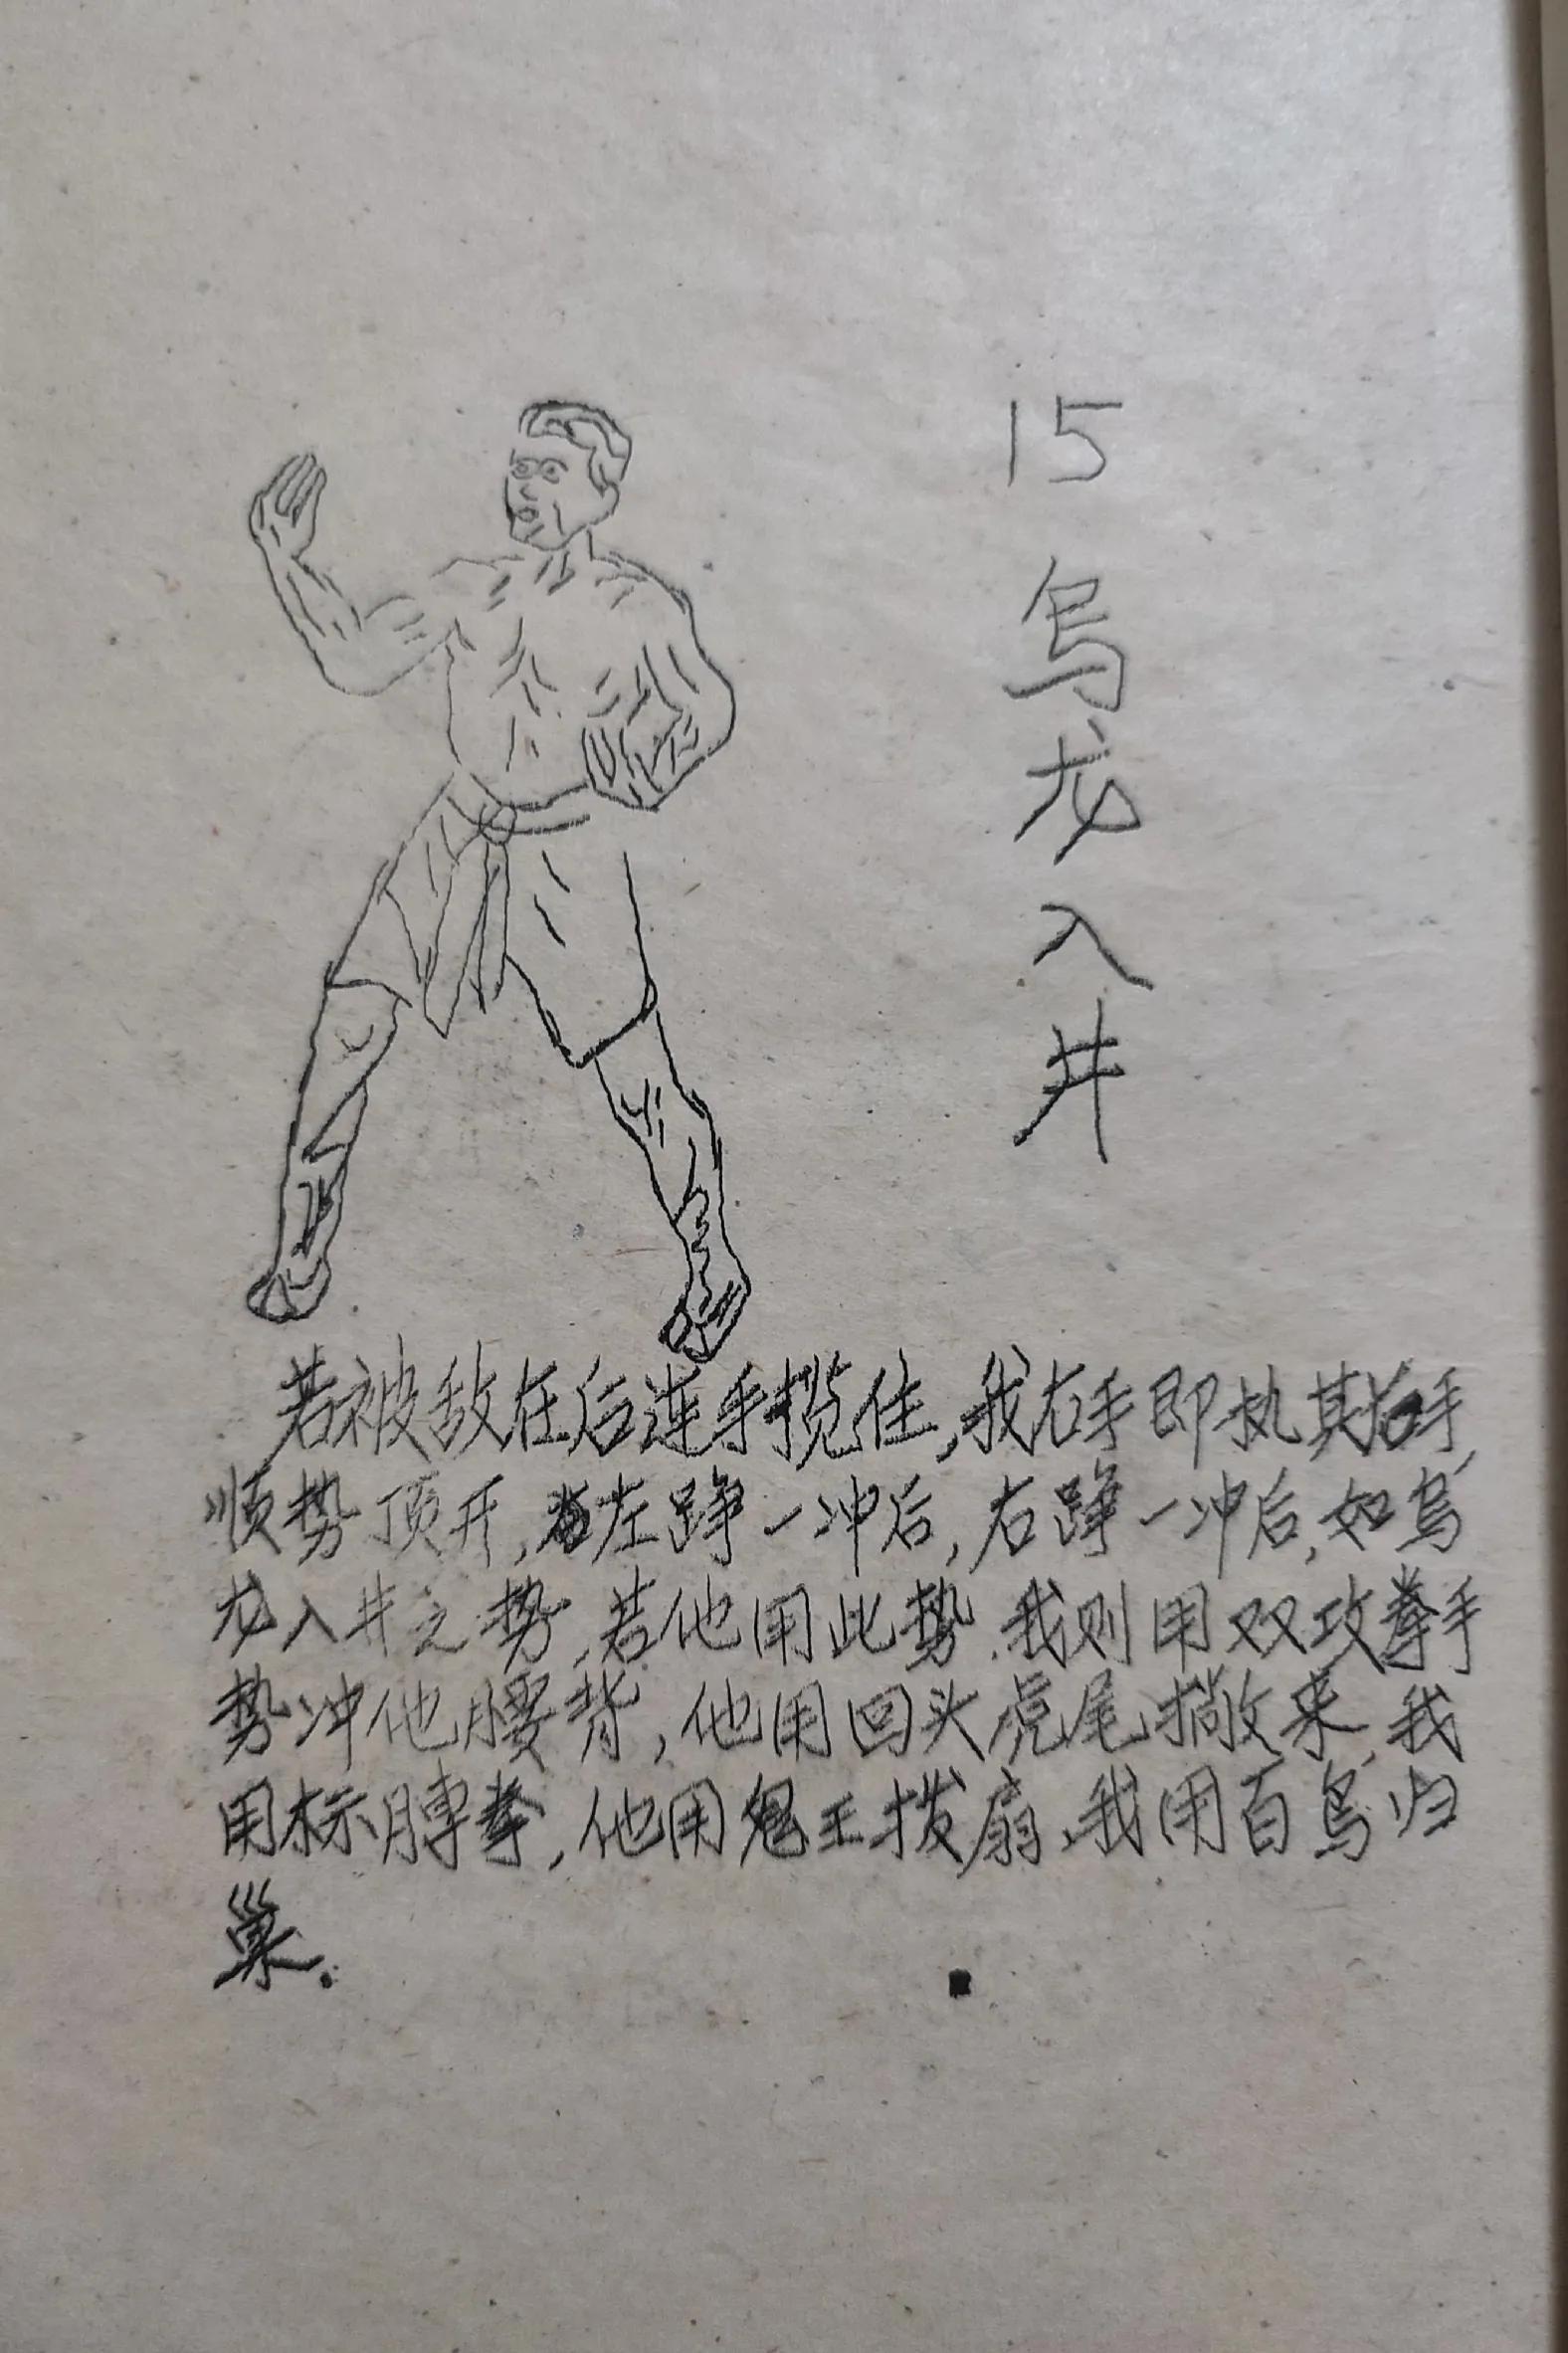 15 乌龙入井
若被敌在后连手揽住,我右手即执其右手,
顺势顶开,左踭一冲后,右踭一冲后,如乌
龙入井之势,若他用此势,我则用双攻拳手
势冲他腰背,他用回头虎尾撒来,我
用标膊拳,他用鬼王拨扇,我用百鸟归
巢.